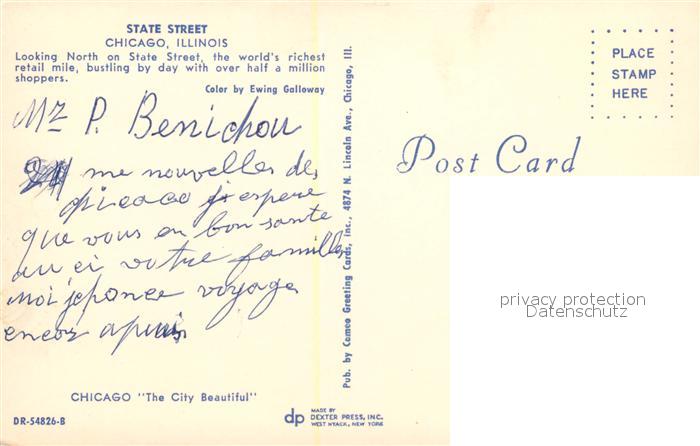 STATE STREET
CHICAGO, ILLINOIS
Looking North on State Street, the world's richest
retail mile, bustling by day with over half a million
shoppers.
Color by Ewing Galloway
Mz P. Benichou
me nouvelles des
chicaco j espere
que vous en bon sante
au ci votre famille
moi je ponce voyage
encor
CHICAGO "The City Beautiful"
DR-54826-B
dp MADE BY
DEXTER PRESS, INC.
WEST NYACK, NEW YORK
Pub. by Cameo Greeting Cards, Inc., 4874 N. Lincoln Ave., Chicago, Ill.
Post Card
PLACE
STAMP
HERE
privacy protection
Datenschutz